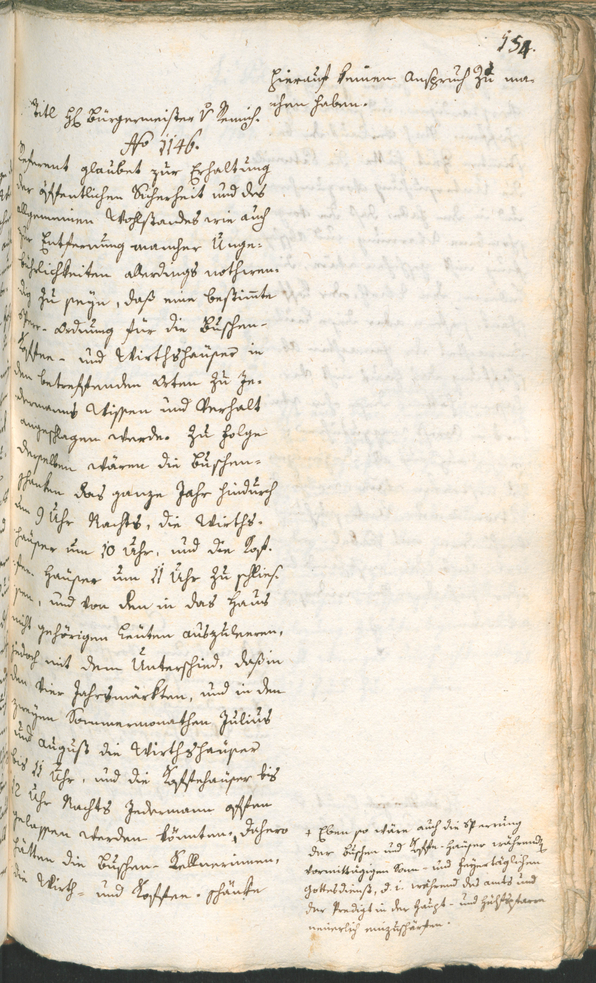 154.
hierauf keinen Anspruch zu ma-
chen haben.
Titl H Bürgermeister
No 1146.
Referent glaubet zur Erhaltung
der öffentlichen Sicherheit und des
allgemeinen Wohlstandes wie auch
zur Entfernung mancher Unge-
bührlichkeiten allerdings nothwen-
dig zu seyn, daß eine bestimte
Sperr-Ordnung für die Buschen-
Caffee- und Wirthshäuser in
den betreffenden Orten zu Je-
dermanns Wissen und Verhalt
angeschlagen werde. Zu Folge
derselben wären die Buschen-
schanken das ganze Jahr hindurch
um 9 Uhr Nachts, die Wirths-
häuser um 10 Uhr, und die Caf-
fee Häuser um 11 Uhr zu schlies-
sen, und von den in das Haus
nicht gehörigen Leuten auszuleeren,
jedoch mit dem Unterschied, daß in
den vier Jahrsmärkten, und in den
zweyen Sommermonathen Julius
und August die Wirthshäuser
bis 11 Uhr, und die Caffeehäuser bis
12 Uhr Nachts Jedermann offen
gelassen werden könnten. Dahero
hätten die Buschen-Kellnerinnen,
die Wirth- und Caffee-schänke
+ Eben so wäre auch die Sperrung
der Buschen und Caffee-Häuser während
vormittägigen Sonn- und Feyertäglichen
Gottesdienst, d. i. während des Amts und
der Predigt in der Haupt- und Hilfspfarre
neuerlich einzuschärfen.